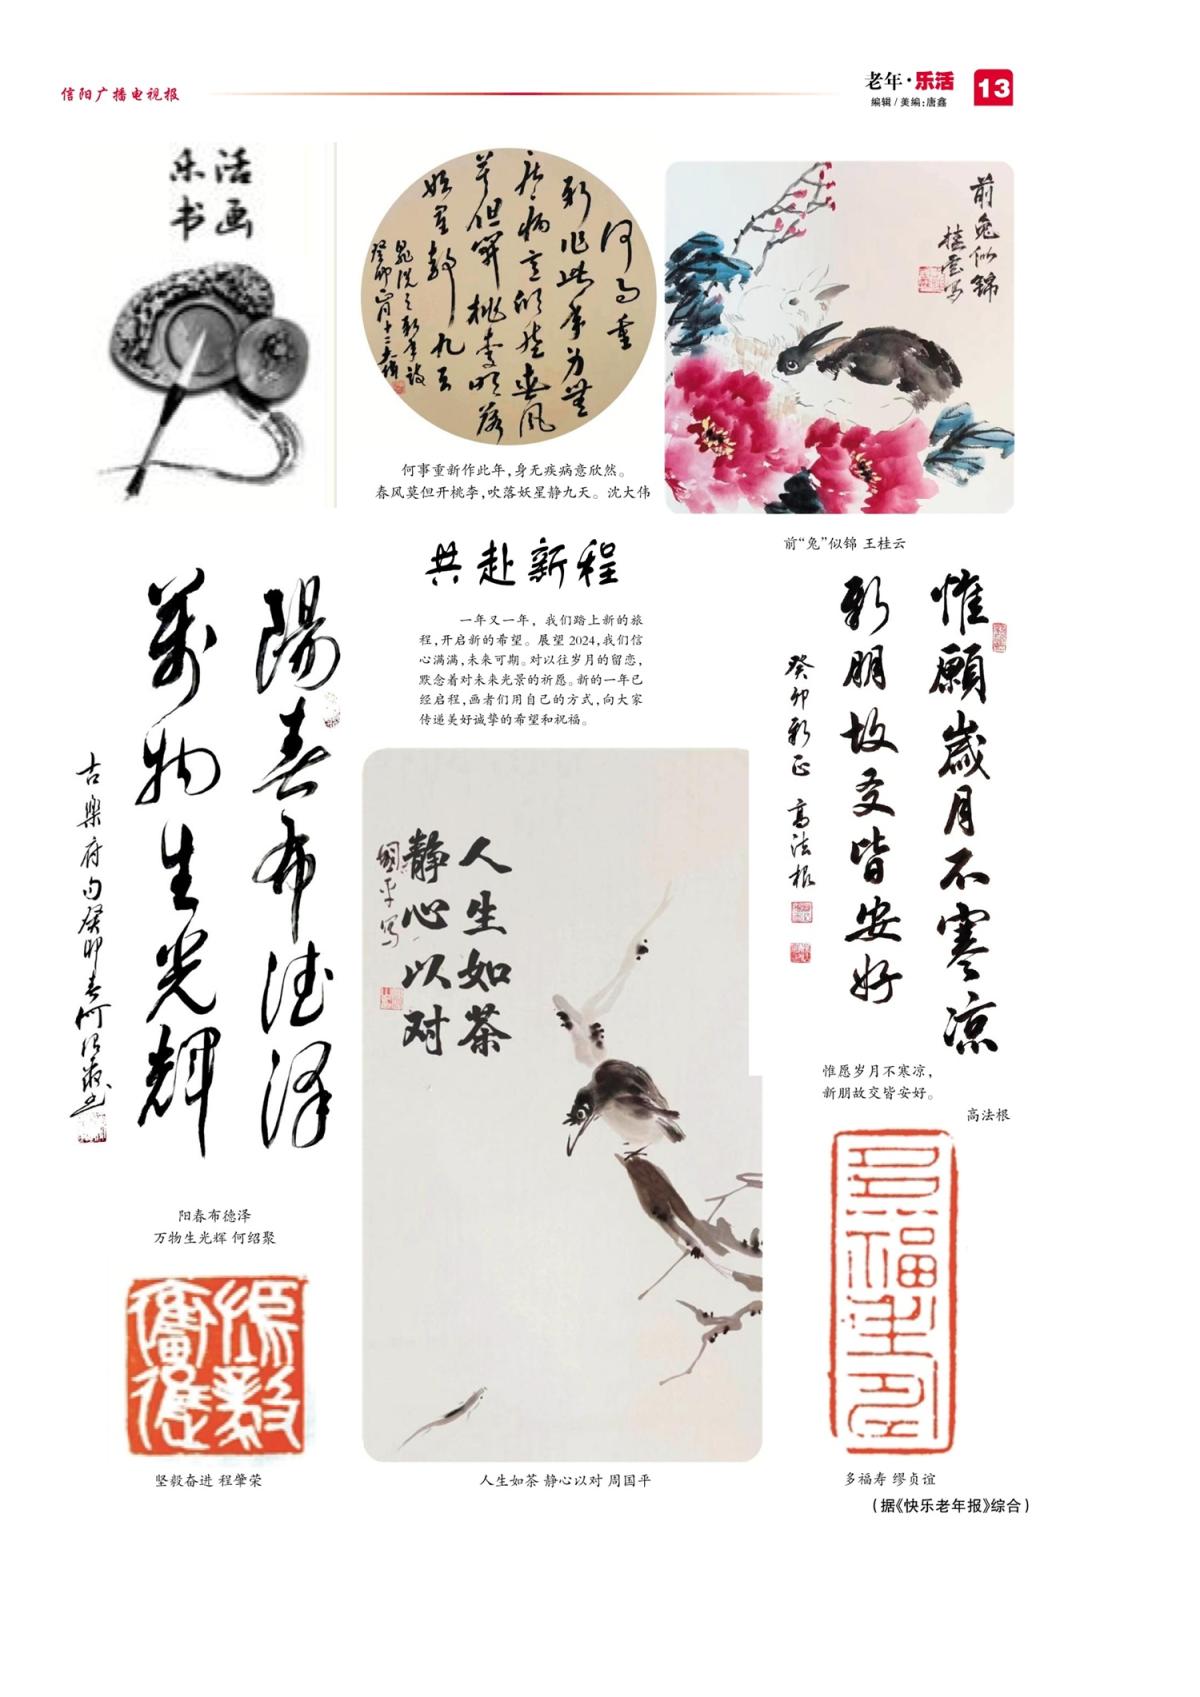 信阳广播电视报
老年·乐活
编辑/美编:唐鑫
13
乐活
书画
何事重新作此年,身无疾病意欣然。
春风莫但开桃李,吹落妖星静九天。沈大伟
前兔似锦
桂云写
前“兔”似锦 王桂云
共赴新程
一年又一年，我们踏上新的旅
程,开启新的希望。展望 2024,我们信
心满满,未来可期。对以往岁月的留恋,
默念着对未来光景的祈愿。新的一年已
经启程,画者们用自己的方式,向大家
传递美好诚挚的希望和祝福。
陽春布德泽
萬物生光輝
古樂府句癸卯春何绍聚书
阳春布德泽
万物生光辉 何绍聚
坚毅奋进 程肇荣
人生如茶
静心以对
國平写
人生如茶 静心以对 周国平
惟願歲月不寒凉
新朋故交皆安好
癸卯新正 高法根
惟愿岁月不寒凉,
新朋故交皆安好。
高法根
多福寿 缪贞谊
(据《快乐老年报》综合)